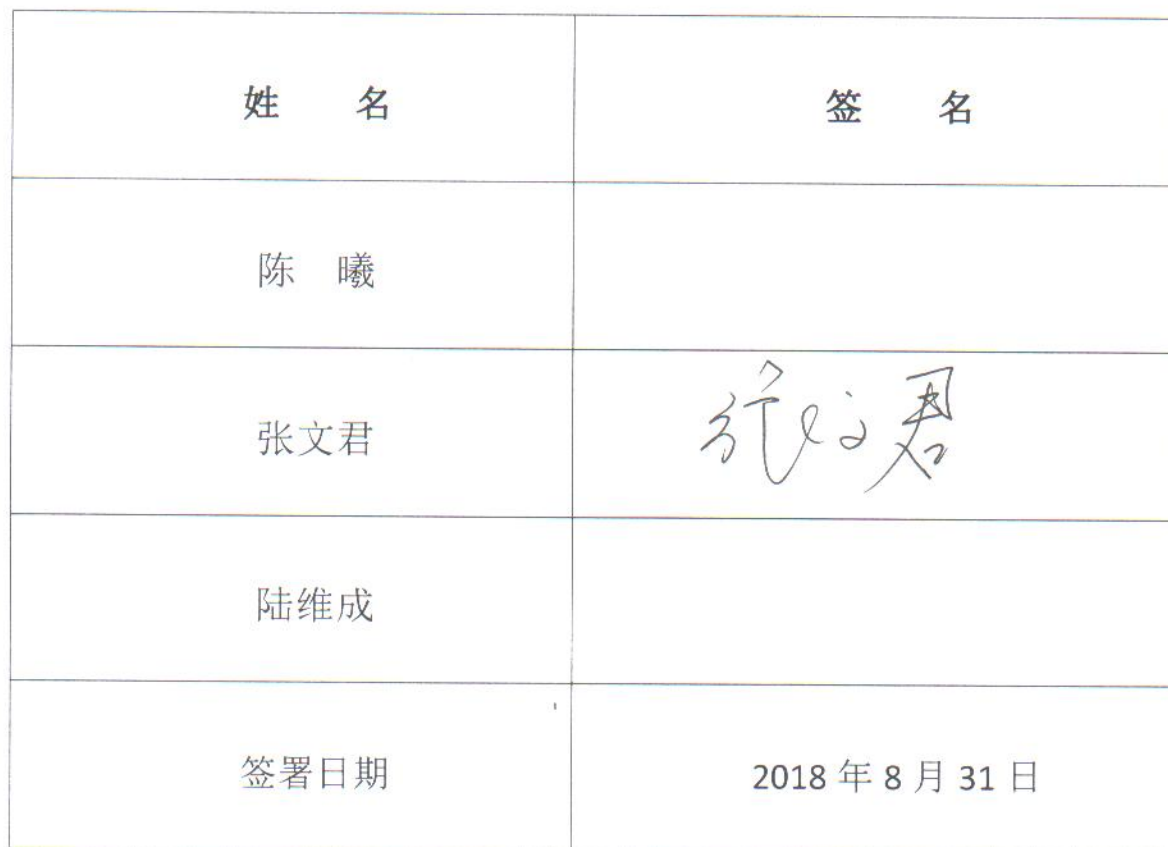 姓 名 签 名
陈 曦
张文君 张文君
陆维成
签署日期 2018 年 8 月 31 日